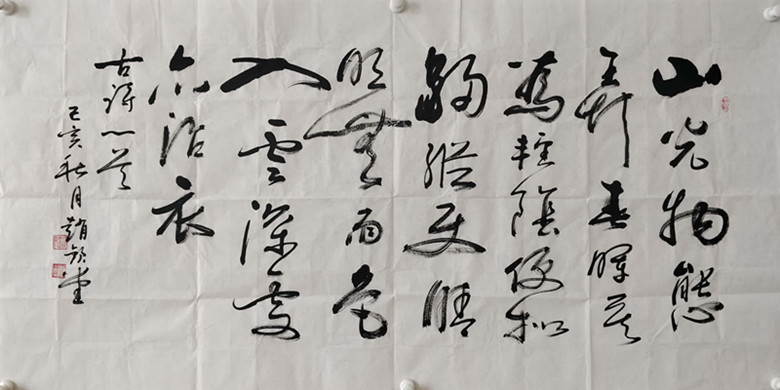 山光物態
弄春暉莫
為輕陰便拟
歸縱使晴
明無雨色
入雲深處
亦沾衣
古詩一首
己亥秋月趙堂